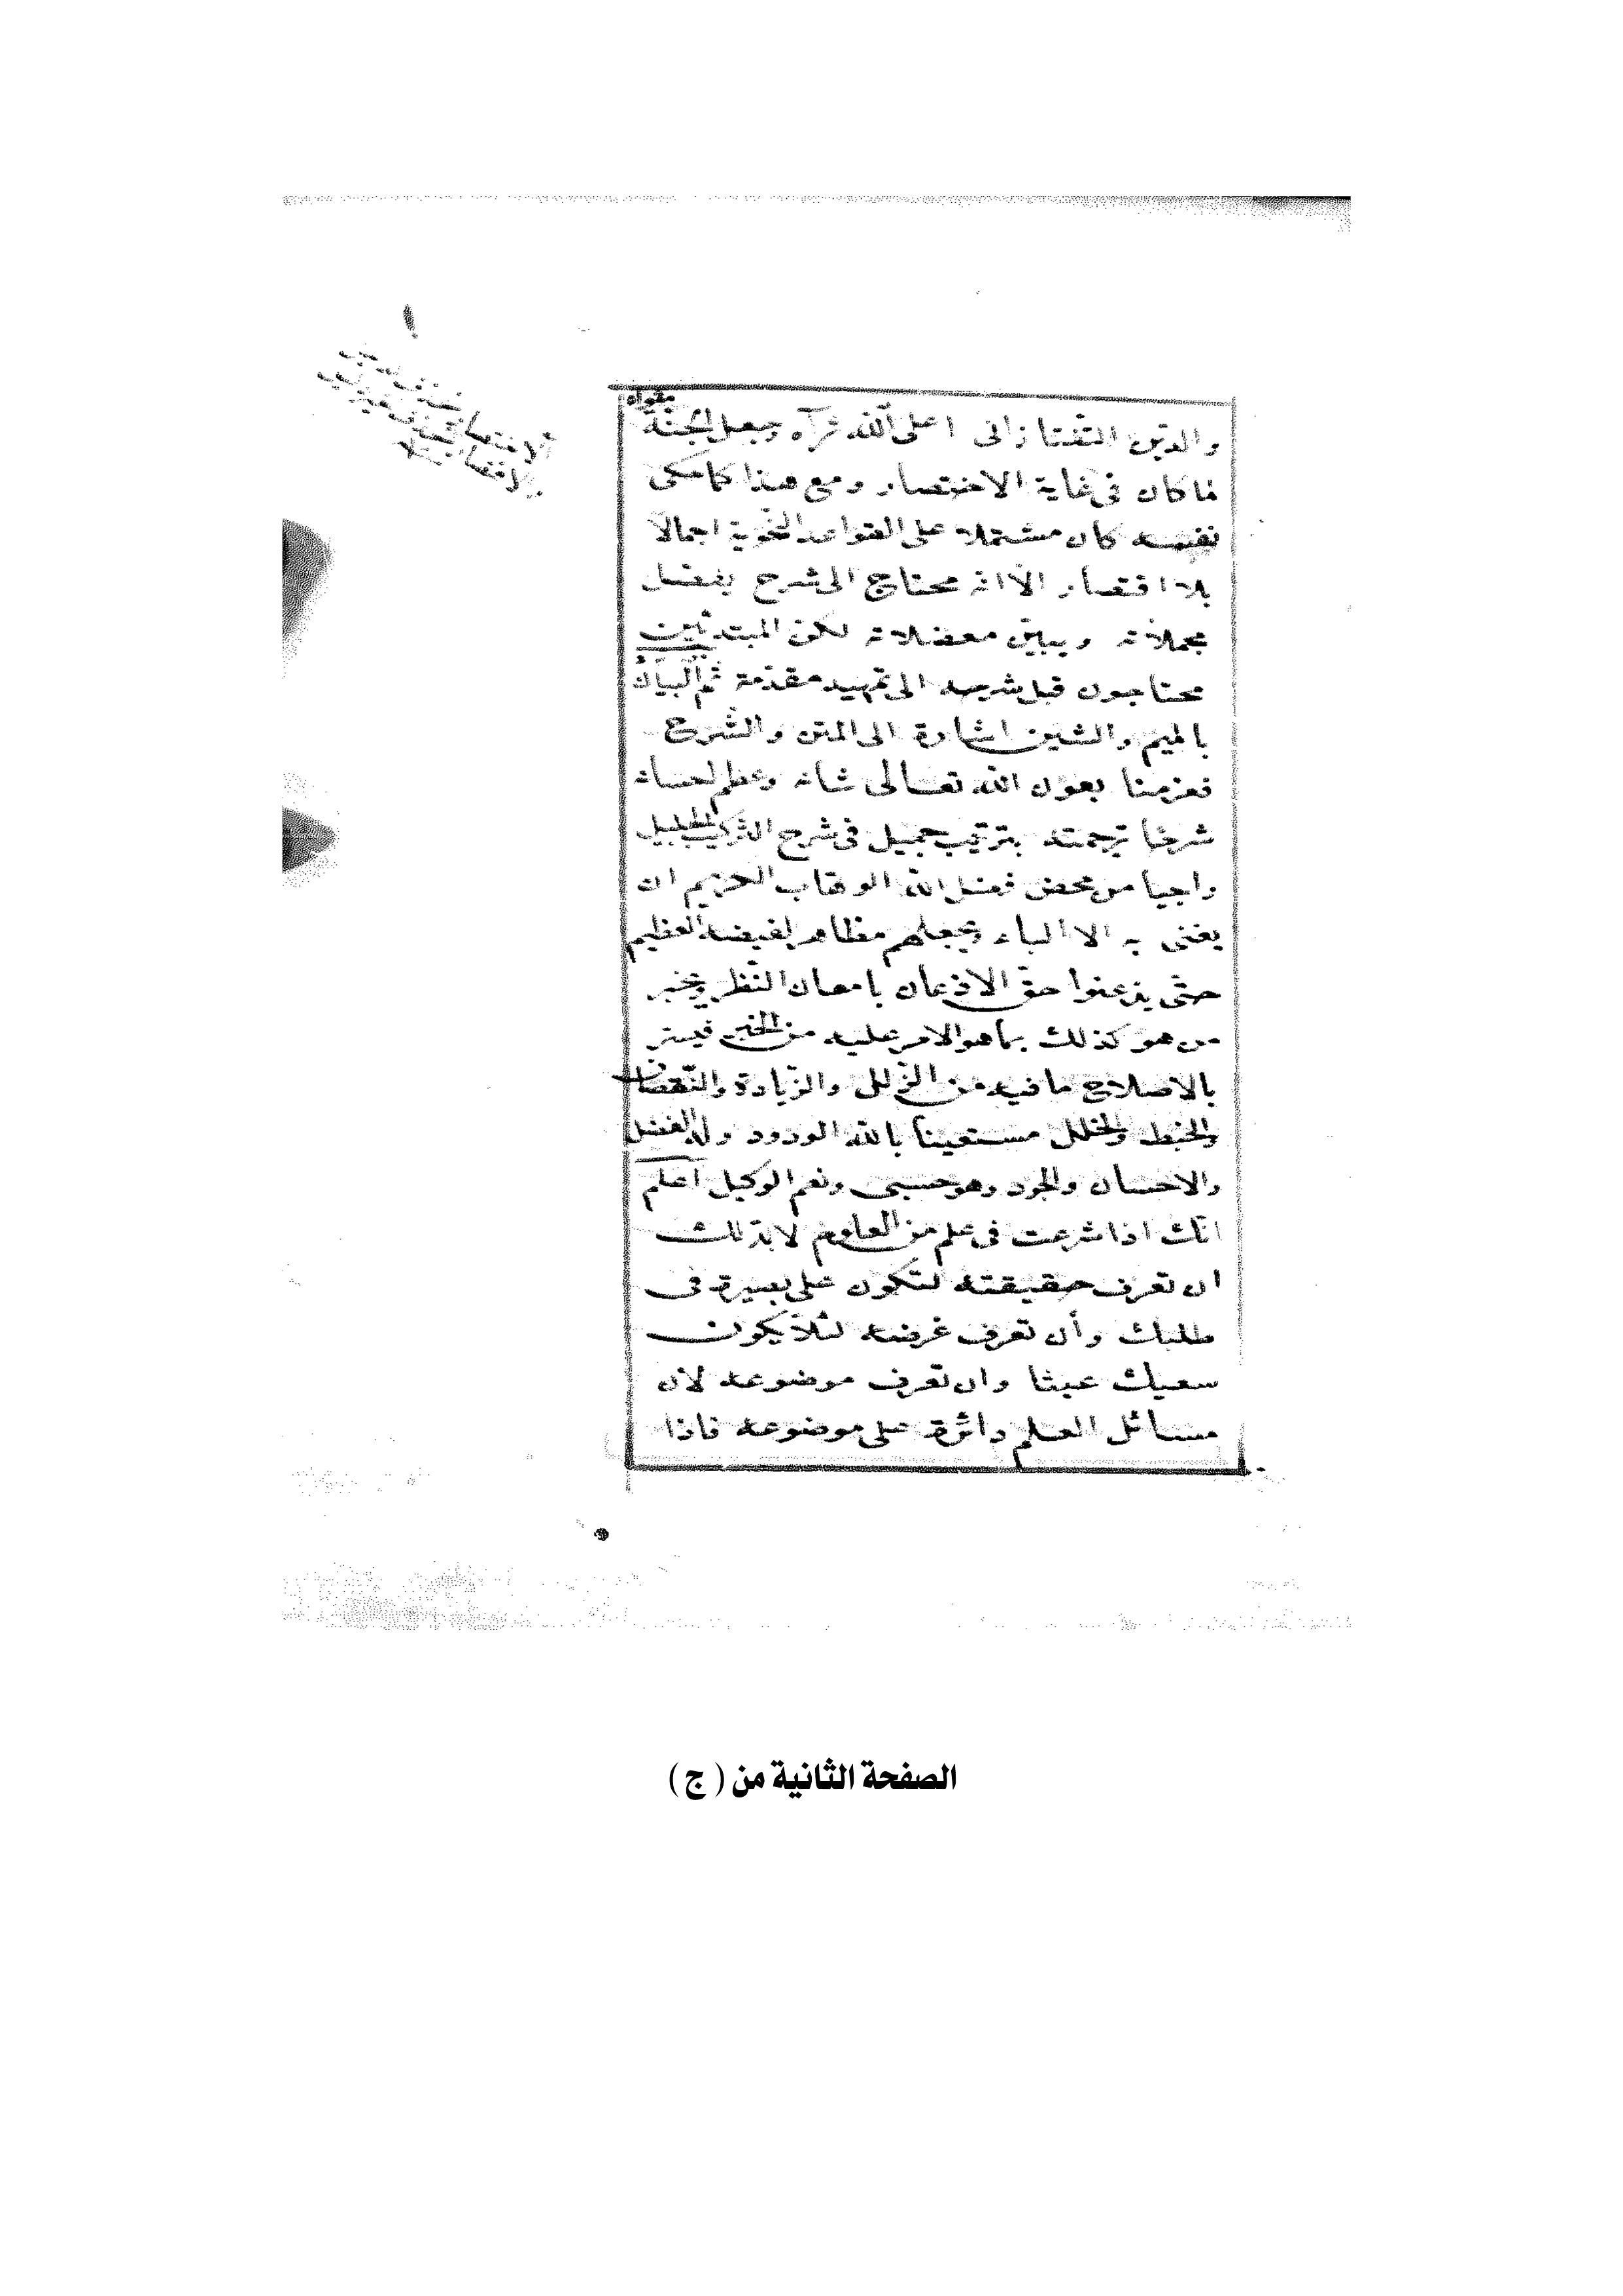 والدين التفتازانى اعلى الله ثراه وجعل الجنة مثواه
لما كان فى غاية الاختصار ومع هذا كما حكى
نفسه كان مشتملا على القواعد النحوية اجمالا
بلا اقتصار الا انه محتاج الى شرح يفصل
مجملاته ويبين معضلاته لكن المبتدئين
محتاجون قبل شرحه الى تمهيد مقدمة ثم البيان
بالميم والشين اشارة الى المتن والشرح
فعزمنا بعون الله تعالى شانه وعظم احسانه
شرحا ترجمته بترتيب جميل فى شرح التركيب الجليل
راجيا من محض فضل الله الوهاب الكريم ان
يغنى به الالباء ويجعلهم مظاهر لفيضه العظيم
حتى يذعنوا حق الاذعان بامعان النظر ويخبر
من هو كذلك بما هو الامر عليه من الخبر فيستر
بالاصلاح ما فيه من الزلل والزيادة والنقصان
والخبط والخلل مستعينا بالله الودود وله الفضل
والاحسان والجود وهو حسبى ونعم الوكيل اعلم
انك اذا شرعت فى علم من العلوم لابد لك
ان تعرف حقيقته لتكون على بصيرة فى
طلبك وأن تعرف غرضه لئلا يكون
سعيك عبثا وان تعرف موضوعه لان
مسائل العلم دائرة على موضوعه فاذا
الصفحة الثانية من ( ج )